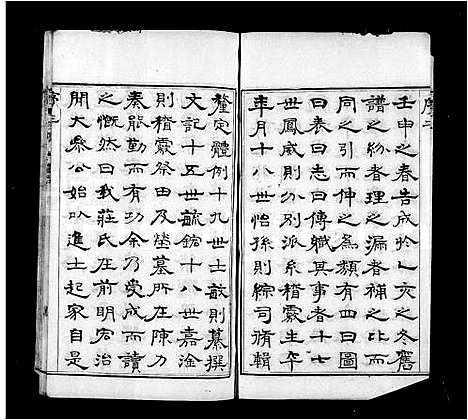 序二
壬申之春告成於乙亥之冬舊
譜之紛者理之漏者補之比而
同之引而伸之為類有四曰圖
曰表曰志曰傳職其事者十七
世鳳威則分別派系稽覈生卒
年月十八世怡孫則綜司脩輯
釐定體例十九世士敏則纂撰
文記十五世毓錠十八世嘉淦
則稽覈祭田及塋墓所在陳力
奏能勤而有功余乃受成而讀
之慨然曰我莊氏在前明宏治
開大參公始以進士起家自是